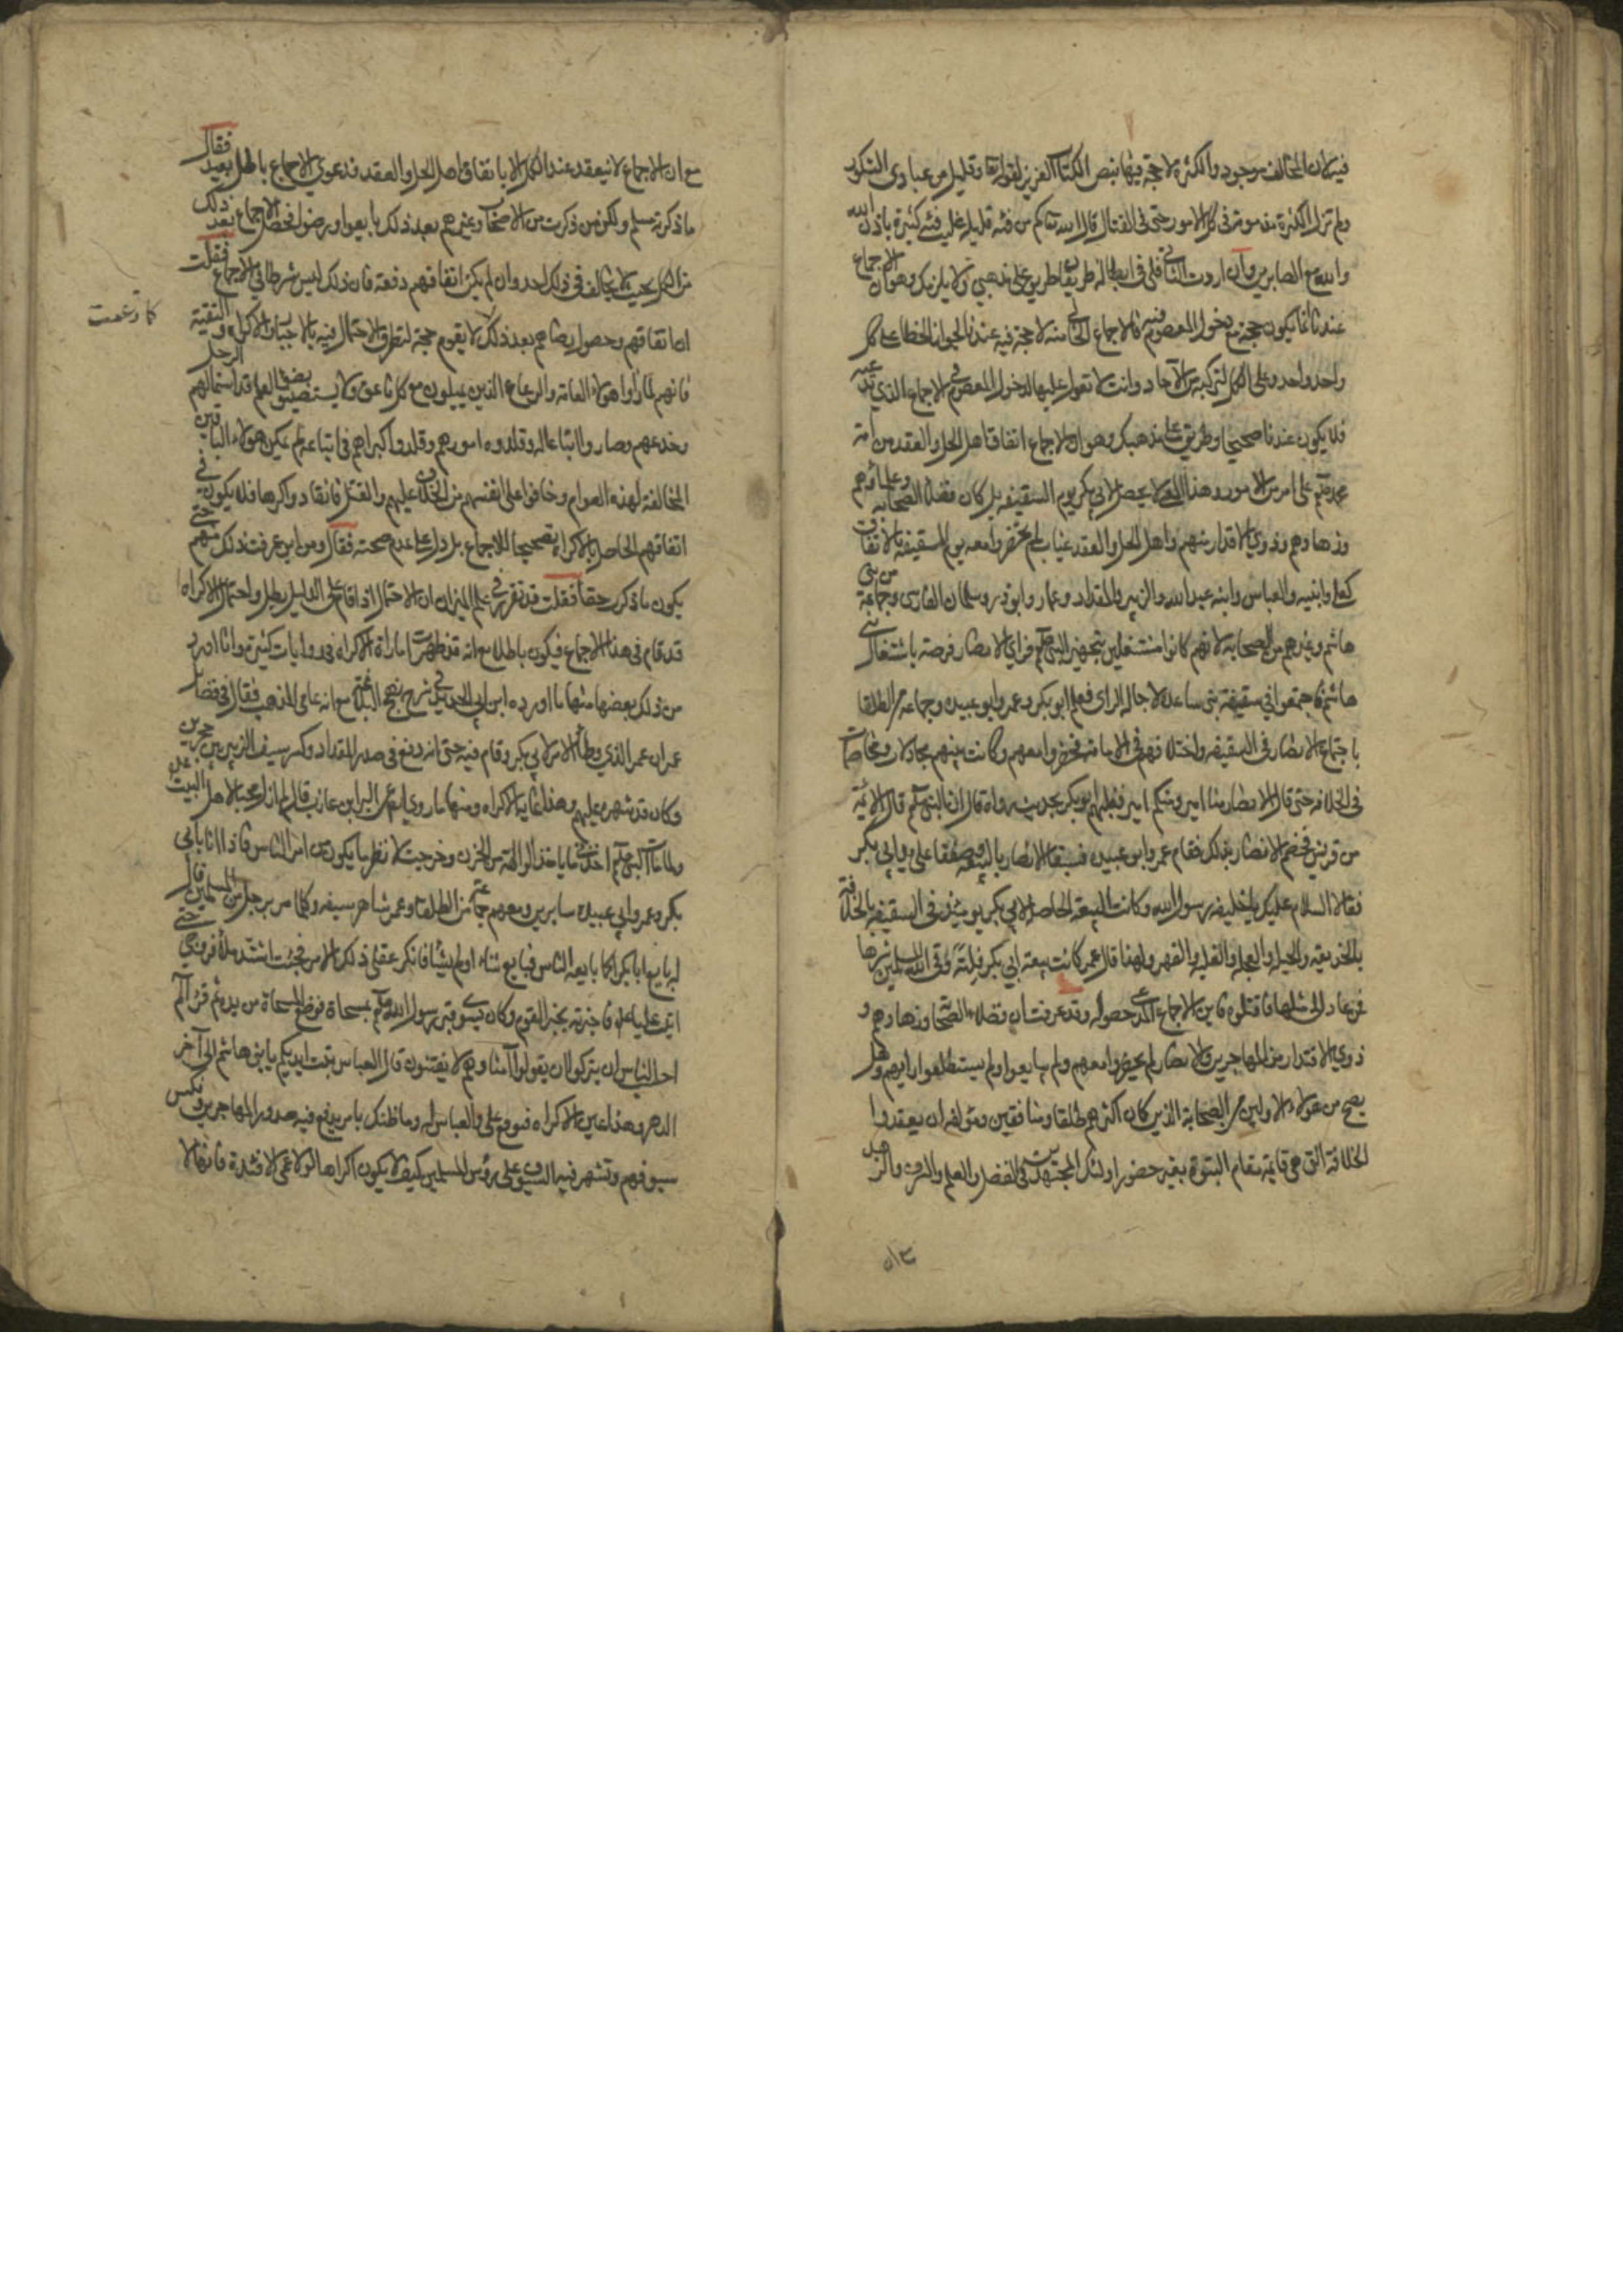 فيه لان المخالف موجود والكثرة لا حجة فيها بنص الكتاب العزيز لقوله تعا وقليل من عبادي الشكور
ولم تزل الكثرة مذمومة في كل الامور حتى في القتال قال الله تعا كم من فئة قليلة غلبت فئة كثيرة باذن الله
والله مع الصابرين وان اردت الثاني فلي في ابطاله طريقان طريق على مذهبي ولا يلزمك وهو ان الاجماع
عندنا انما يكون حجة مع دخول المعصوم فيه فالاجماع الخالي منه لا حجة فيه عندنا لجواز الخطا على كل
واحد واحد وعلى الكل لتركبه من الآحاد وانت لا تعول عليها لدخول المعصوم في الاجماع الذي تدعيه
فلا يكون عندنا صحيحا وطريق على مذهبك وهو ان الاجماع اتفاق اهل الحل والعقد من امة
محمد صلعم على امر من الامور وهذا المعنى لم يحصل لابي بكر يوم السقيفة بل كان فضلاء الصحابة وعلماؤهم
وزهادهم وذوي الاقدار منهم واهل الحل والعقد غياب لم يحضروا معه يوم السقيفة بالاتفاق
كعلي وابنيه والعباس وابنه عبد الله والزبير والمقداد وعمار وابو ذر وسلمان الفارسي وجماعة من بني
هاشم وغيرهم من الصحابة لانهم كانوا مشتغلين بتجهيز النبي صلعم فراى الانصار فرصة باشتغال بني
هاشم فاجتمعوا في سقيفة بني ساعدة لاجالة الراى فعلم ابو بكر وعمر وابو عبيدة وجماعة من الطلقا
باجتماع الانصار في السقيفة واختلافهم في الامامة فحضروا معهم وكانت بينهم مجادلات ومخاصمات
في الخلافة حتى قال الانصار منا امير ومنكم امير فغلبهم ابو بكر بحديث رواه قال ان النبي صلعم قال الائمة
من قريش فخصم الانصار بذلك فقام عمر وابو عبيدة فسبقا الانصار بالبيعة وصفقا على يد ابي بكر
فقالا السلام عليك يا خليفة رسول الله وكانت البيعة الحاصلة لابي بكر يومئذ في السقيفة بالخلافة
بالخديعة والحيلة والعجلة والغلبة والقهر ولهذا قال عمر كانت بيعة ابي بكر فلتة وقى الله المسلمين شرها
فمن عاد الى مثلها فاقتلوه فاين الاجماع المدعى حصوله وقد عرفت ان فضلاء الصحابة وزهادهم و
ذوي الاقتدار من المهاجرين والانصار لم يحضروا معهم ولم يبايعوا ولم يستطلعوا رايهم وهل
يصح من هؤلاء الاولين من الصحابة الذين كان اكثرهم طلقا ومنافقين ومؤلفة ان يعقدوا
الخلافة التي هي قائمة مقام النبوة بغير حضور اولئك المجتهدين في الفضل والعلم والشرف والزهد
مع ان الاجماع لا ينعقد عند الكل الا باتفاق اهل الحل والعقد فدعوى الاجماع باطل بعيد فقال
ما ذكرته مسلم ولكن من ذكرت من الاصحاب وغيرهم بعد ذلك بايعوا ورضوا فحصل الاجماع بعد ذلك
من الكل بحيث لا يخالف في ذلك احد وان لم يكن اتفاقهم دفعة فان ذلك ليس شرطا في الاجماع فقلت
كما زعمت
ان اتفاقهم وحصول رضاهم بعد ذلك لا يقوم حجة لتطرق الاحتمال فيه بالاجبار والاكراه والتقية
فانهم لما راوا هؤلاء العامة والرعاع الذين يميلون مع كل ناعق ولا يستضيئون بضوء العلم قد استمالهم الرجل
وخدعهم وصاروا اتباعا له وقلدوه امورهم وقلدوا كبراهم في اتباعه لم يمكن هؤلاء الباقين
المخالفة لهذه العوام وخافوا على انفسهم من الخلاف عليهم والقتل فانقادوا كرها فلا يكون في
اتفاقهم الحاصل بالاكراه تصحيحا للاجماع بل دل على عدم صحته فقال ومن اين عرفت ذلك منهم حتى
يكون ما ذكرت حقا فقلت قد تقرر في علم الميزان ان الاحتمال اذا قام على الدليل بطل واحتمال الاكراه
قد قام في هذا الاجماع فيكون باطلا مع انه قد ظهرت امارات الاكراه في روايات كثيرة وانا اورد
من ذلك بعضها منها ما اورده ابن ابي الحديد في شرح نهج البلاغة مع انه عامي المذهب فقال في فضائل
عمر ان عمر الذي وطأ الامر لابي بكر وقام فيه حتى انه دفع في صدر المقداد وكسر سيف الزبير حين
وكان قد شهره عليهم وهذا غاية الاكراه ومنها ما روي ايضا عن البراء بن عازب قال لم ازل محبا لاهل البيت
ولما مات النبي صلعم اخذني ما ياخذ الوالهة من الحزن وخرجت لانظر ما يكون من امر الناس فاذا انا بابي
بكر وعمر وابي عبيدة سايرين ومعهم جماعة من الطلقاء وعمر شاهر سيفه وكلما مر برجل من المسلمين قال
له بايع ابا بكر كما بايعه الناس فبايع شاء او لم يشا فانكر عقلي ذلك الامر فجئت اشتد ملأ فروجي حتى
اتيت عليا فاخبرته بخبر القوم وكان يسوي قبر رسول الله صلعم بمسحاة فوضع المسحاة من يده ثم قرا الم
احسب الناس ان يتركوا ان يقولوا آمنا وهم لا يفتنون قال العباس تربت ايديكم يا بني هاشم الى آخر
الدهر وهذا عين الاكراه فسمع علي والعباس له وما ظنك بامر يدفع فيه صدور المهاجرين وتكسر
سيوفهم وتشهر فيه السيوف على رؤس المسلمين كيف لا يكون اكراها لولا عمى الافئدة فانها لا